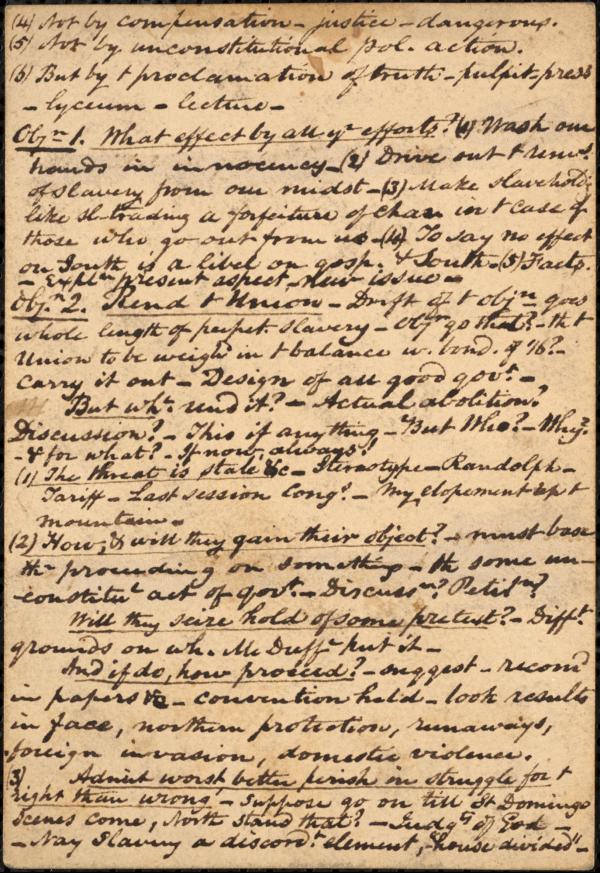 (4) Not by compensation – justice – dangerous.
(5) Not by unconstitutional pol. action.
(6) But by t proclamation of truth – pulpit, press
– lyceum – lecture –
Objn 1. What effect by all yr efforts? (1) Wash our
hands in innocency – (2) Drive out t
of slavery from our midst – (3) Make slavehold
like sl-trading a forfeiture of char in t case of
those who go out from us – (4) To say no effect
on South is a libel on gosp. & South – (5) Facts.
– Expln present aspect – new issue –
Obj.n 2. Rend t Union – Drift of t objn goes
whole length of perpet slavery – Objr go that? – tht
Union to be weighd in t balance w. bond. of
carry it out – Design of all good govt –
But wht. rend it? – Actual abolition?
Discussion? – This if anything – But Who? – Why?
– & for what? – If now, always?
(1) The threat is stale &c – Stereotype – Randolph –
Tariff – Last session Congs. – My elopement up t
mountain –
(2) How, & will they gain their object? – must base
thr proceeding on something – th some un-
constitul act of govt – Discussn? Petitn?
Will they seize hold of some pretext? – Difft.
grounds on wh. Mc Duffe put it –
And if do, how proceed? – suggest – recomd
in papers &c – convention held – look results
in face, northern protection, runaways,
foreign invasion, domestic violence.
(3) Admit worst, better perish in struggle for t
right than wrong – Suppose go on till St Domingo
Scenes come, North stand that? – Judgts of God –
– Nay Slavery a discordt element, "house divided" –